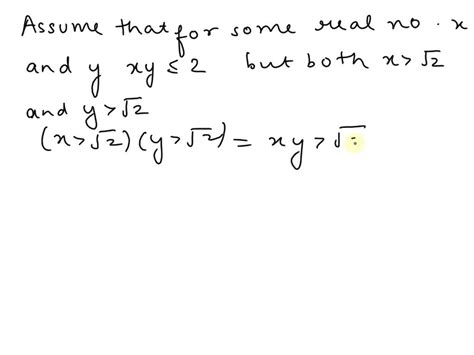 Assume that for some real no. x
and y xy ≤ 2 but both x > √2
and y > √2
(x > √2) (y > √2) = xy > √